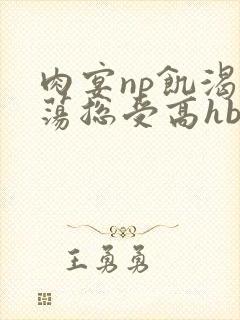 肉宴np飢渴
蕩総受高hb
王勇勇